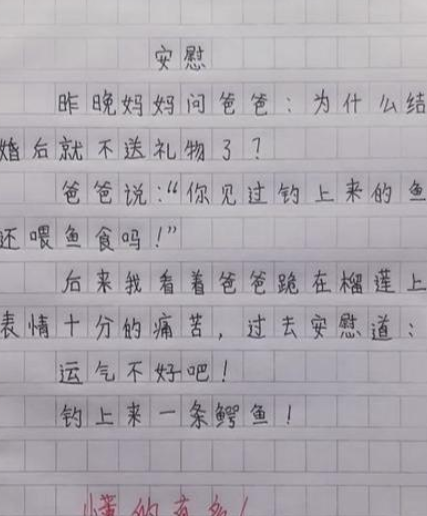 安慰
昨晚妈妈问爸爸：为什么结
婚后就不送礼物了？
爸爸说：“你见过钓上来的鱼
还喂鱼食吗！”
后来我看着爸爸跪在榴莲上
表情十分的痛苦，过去安慰道：
运气不好吧！
钓上来一条鳄鱼！
懂的真多！